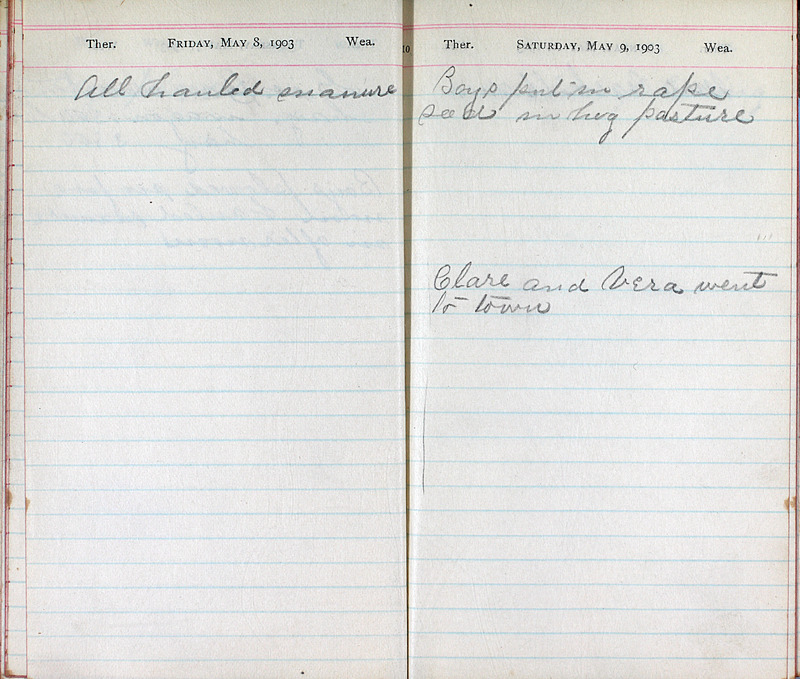 Ther. FRIDAY, MAY 8, 1903 Wea.
All hauled manure
Ther. SATURDAY, MAY 9, 1903 Wea.
Boys put in rape
seed in hog pasture
Clare and Vera went
to town